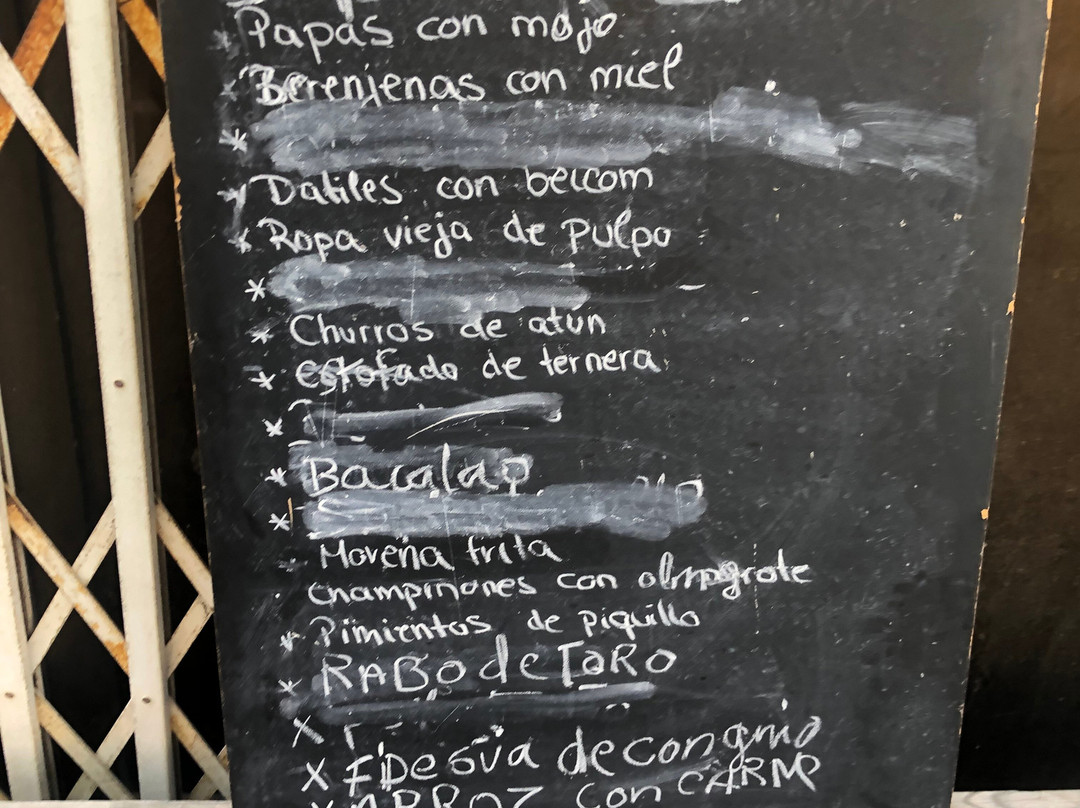 Papas con mojo
Berenjenas con miel
Datiles con beicom
Ropa vieja de Pulpo
Churros de atun
estofado de ternera
Bacalao
Morena frita
champiñones con almogrote
Pimientos de piquillo
RABO de ToRO
de
ARROZ con CARNe